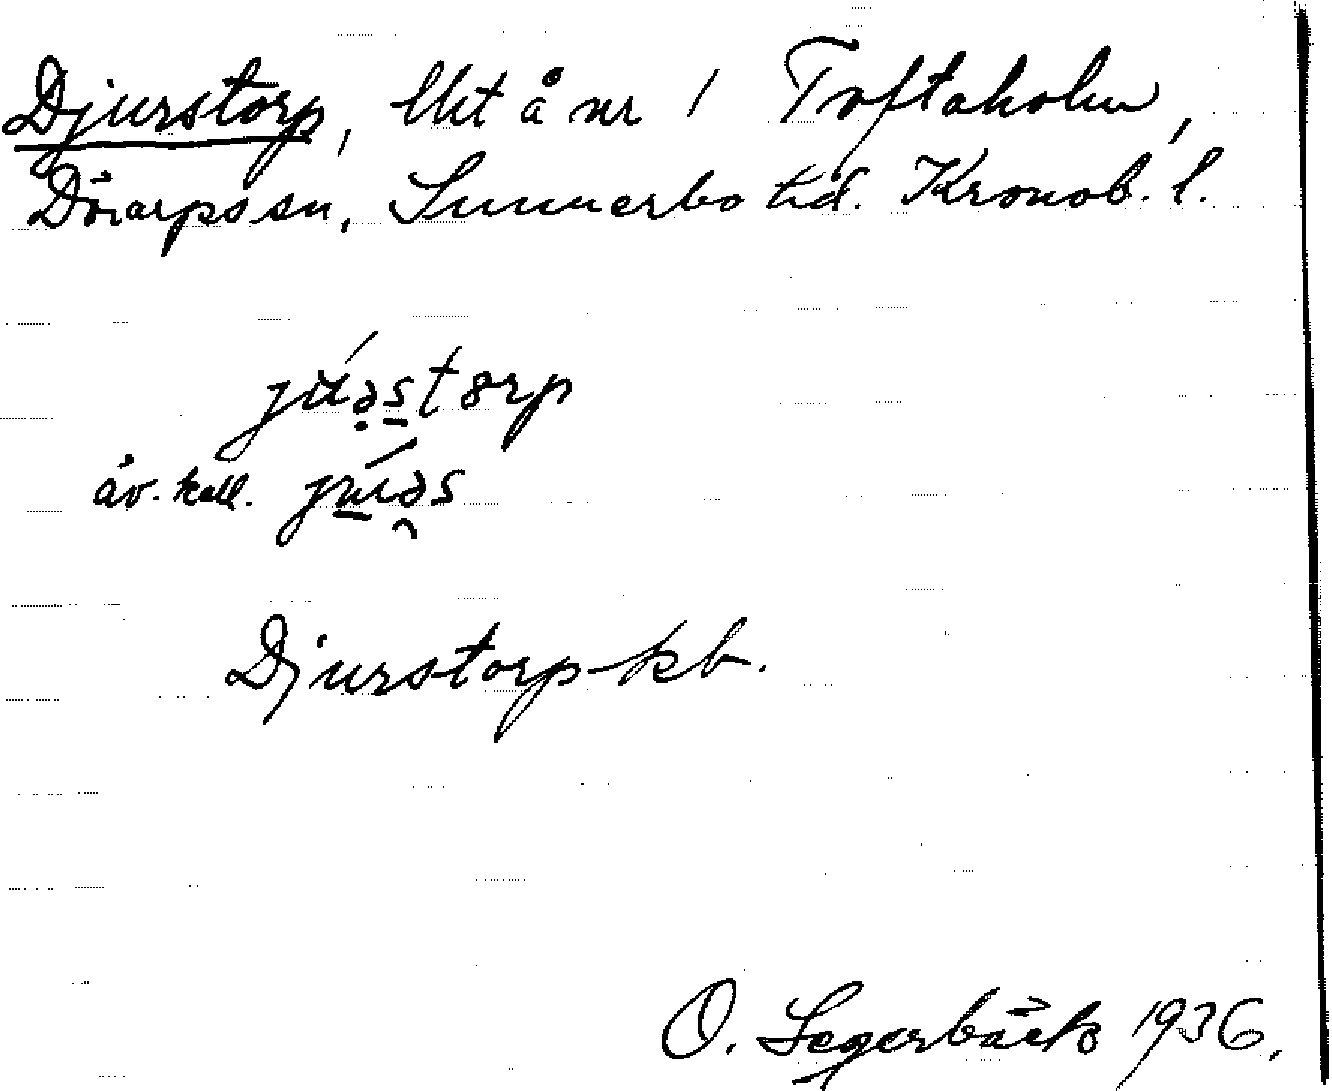 Djurstorp, lht å nr 1 Toftaholm,
Dörarps sn, Sunnerbo hd. Kronob. l.
júəstorp
äv. kall. júəs
Djurstorp kb.
O. Segerbäck 1936.